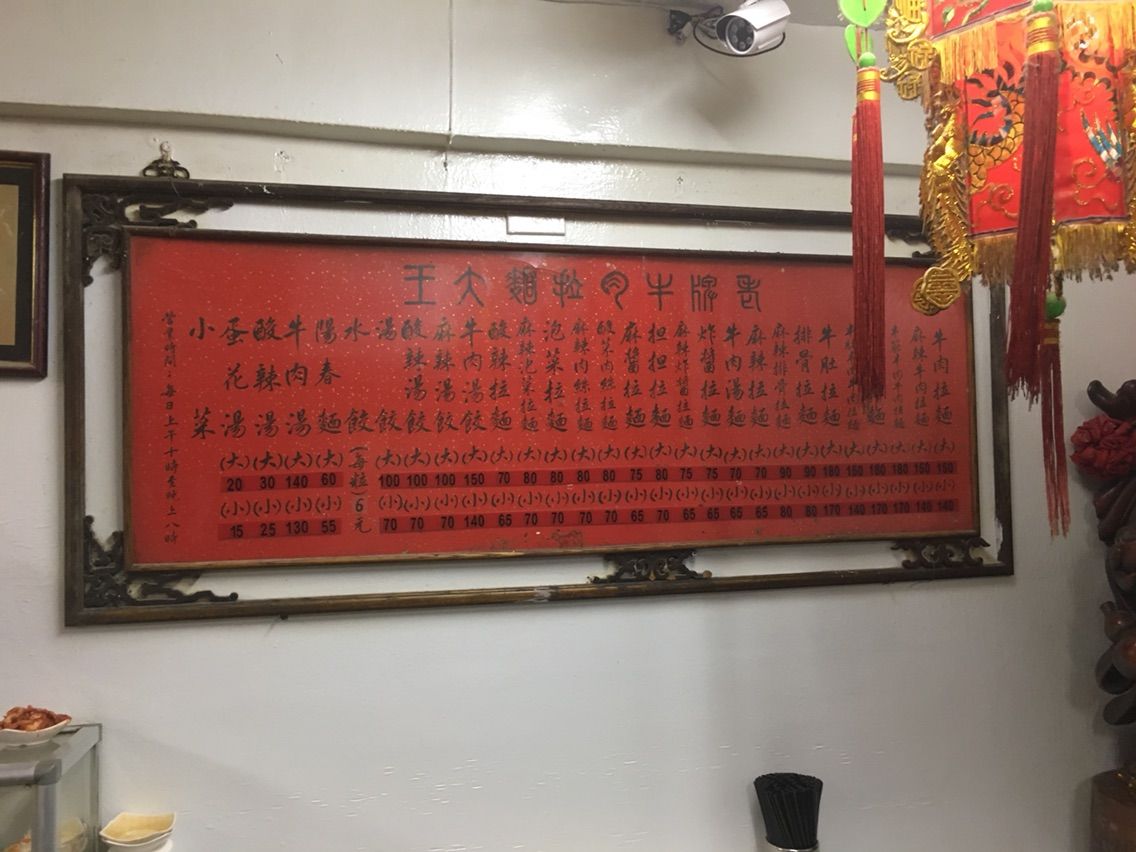 老牌牛肉拉麵大王
牛肉拉麵 (大) 150 (小) 140
麻辣牛肉拉麵 (大) 150 (小) 140
(大) 180 (小) 170
(大) 180 (小) 170
牛肚拉麵 (大) 180 (小) 170
排骨拉麵 (大) 90 (小) 80
麻辣排骨拉麵 (大) 90 (小) 80
麻辣拉麵 (大) 70 (小) 65
牛肉湯麵 (大) 70 (小) 65
炸醬拉麵 (大) 75 (小) 65
麻辣炸醬拉麵 (大) 75 (小) 65
担担拉麵 (大) 80 (小) 70
麻醬拉麵 (大) 75 (小) 65
酸菜肉絲拉麵 (大) 80 (小) 70
麻辣肉絲拉麵 (大) 80 (小) 70
泡菜拉麵 (大) 80 (小) 70
麻辣泡菜拉麵 (大) 80 (小) 70
酸辣拉麵 (大) 70 (小) 65
牛肉湯餃 (大) 150 (小) 140
麻辣湯餃 (大) 100 (小) 70
酸辣湯餃 (大) 100 (小) 70
湯餃 (大) 100 (小) 70
水餃 (每粒) 6元
陽春麵 (大) 60 (小) 55
牛肉湯 (大) 140 (小) 130
酸辣湯 (大) 30 (小) 25
蛋花湯 (大) 20 (小) 15
小菜
營業時間：每日上午十時至晚上八時